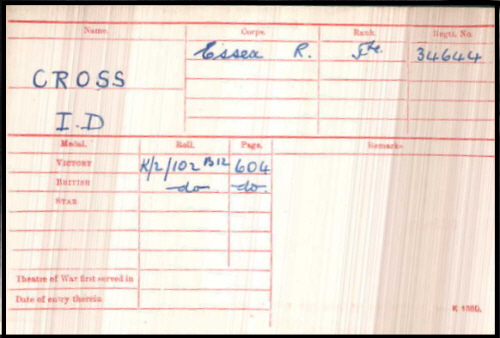 Name. Corps. Rank. Regtl. No.
Essex R. Pte. 34644
CROSS
I.D
Medal. Roll. Page. Remarks
VICTORY K/2/102 B12 604
BRITISH do do.
STAR
Theatre of War first served in
Date of entry therein
K 1380.